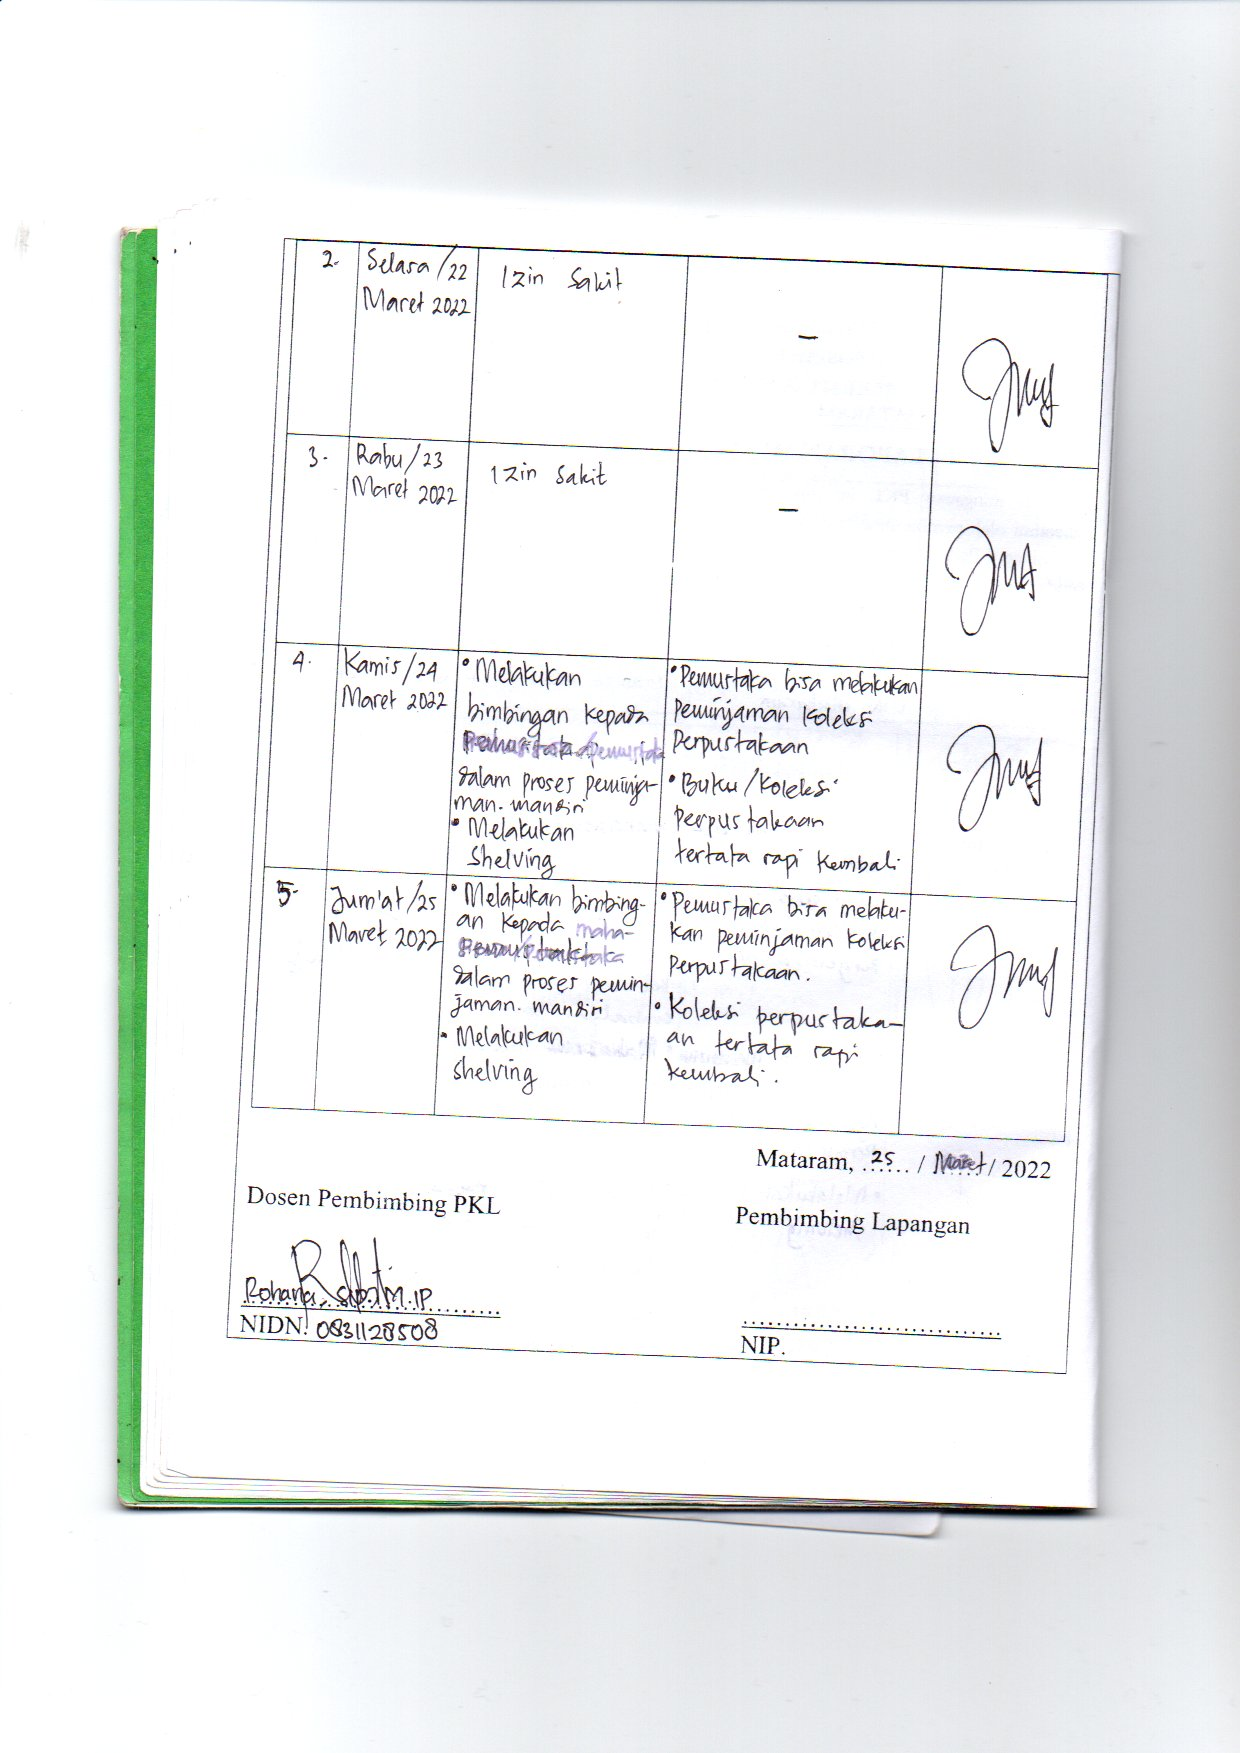 2.
Selasa/22
Maret 2022
Izin Sakit
–
3.
Rabu/23
Maret 2022
Izin Sakit
–
4.
Kamis/24
Maret 2022
• Melakukan
bimbingan kepada
/pemustaka
dalam proses peminja-
man. mandiri
• Melakukan
Shelving
• Pemustaka bisa melakukan
Peminjaman Koleksi
Perpustakaan
• Buku/Koleksi
Perpustakaan
tertata rapi kembali
5.
Jum'at/25
Maret 2022
• Melakukan bimbing-
an kepada maha-
dalam proses pemin-
jaman. mandiri
• Melakukan
Shelving
• Pemustaka bisa melaku-
kan peminjaman koleksi
Perpustakaan.
• Koleksi perpustaka-
an tertata rapi
kembali.
Mataram, 25 / Maret / 2022
Dosen Pembimbing PKL
Pembimbing Lapangan
Rohana, M.IP
NIDN. 0831128508
NIP.